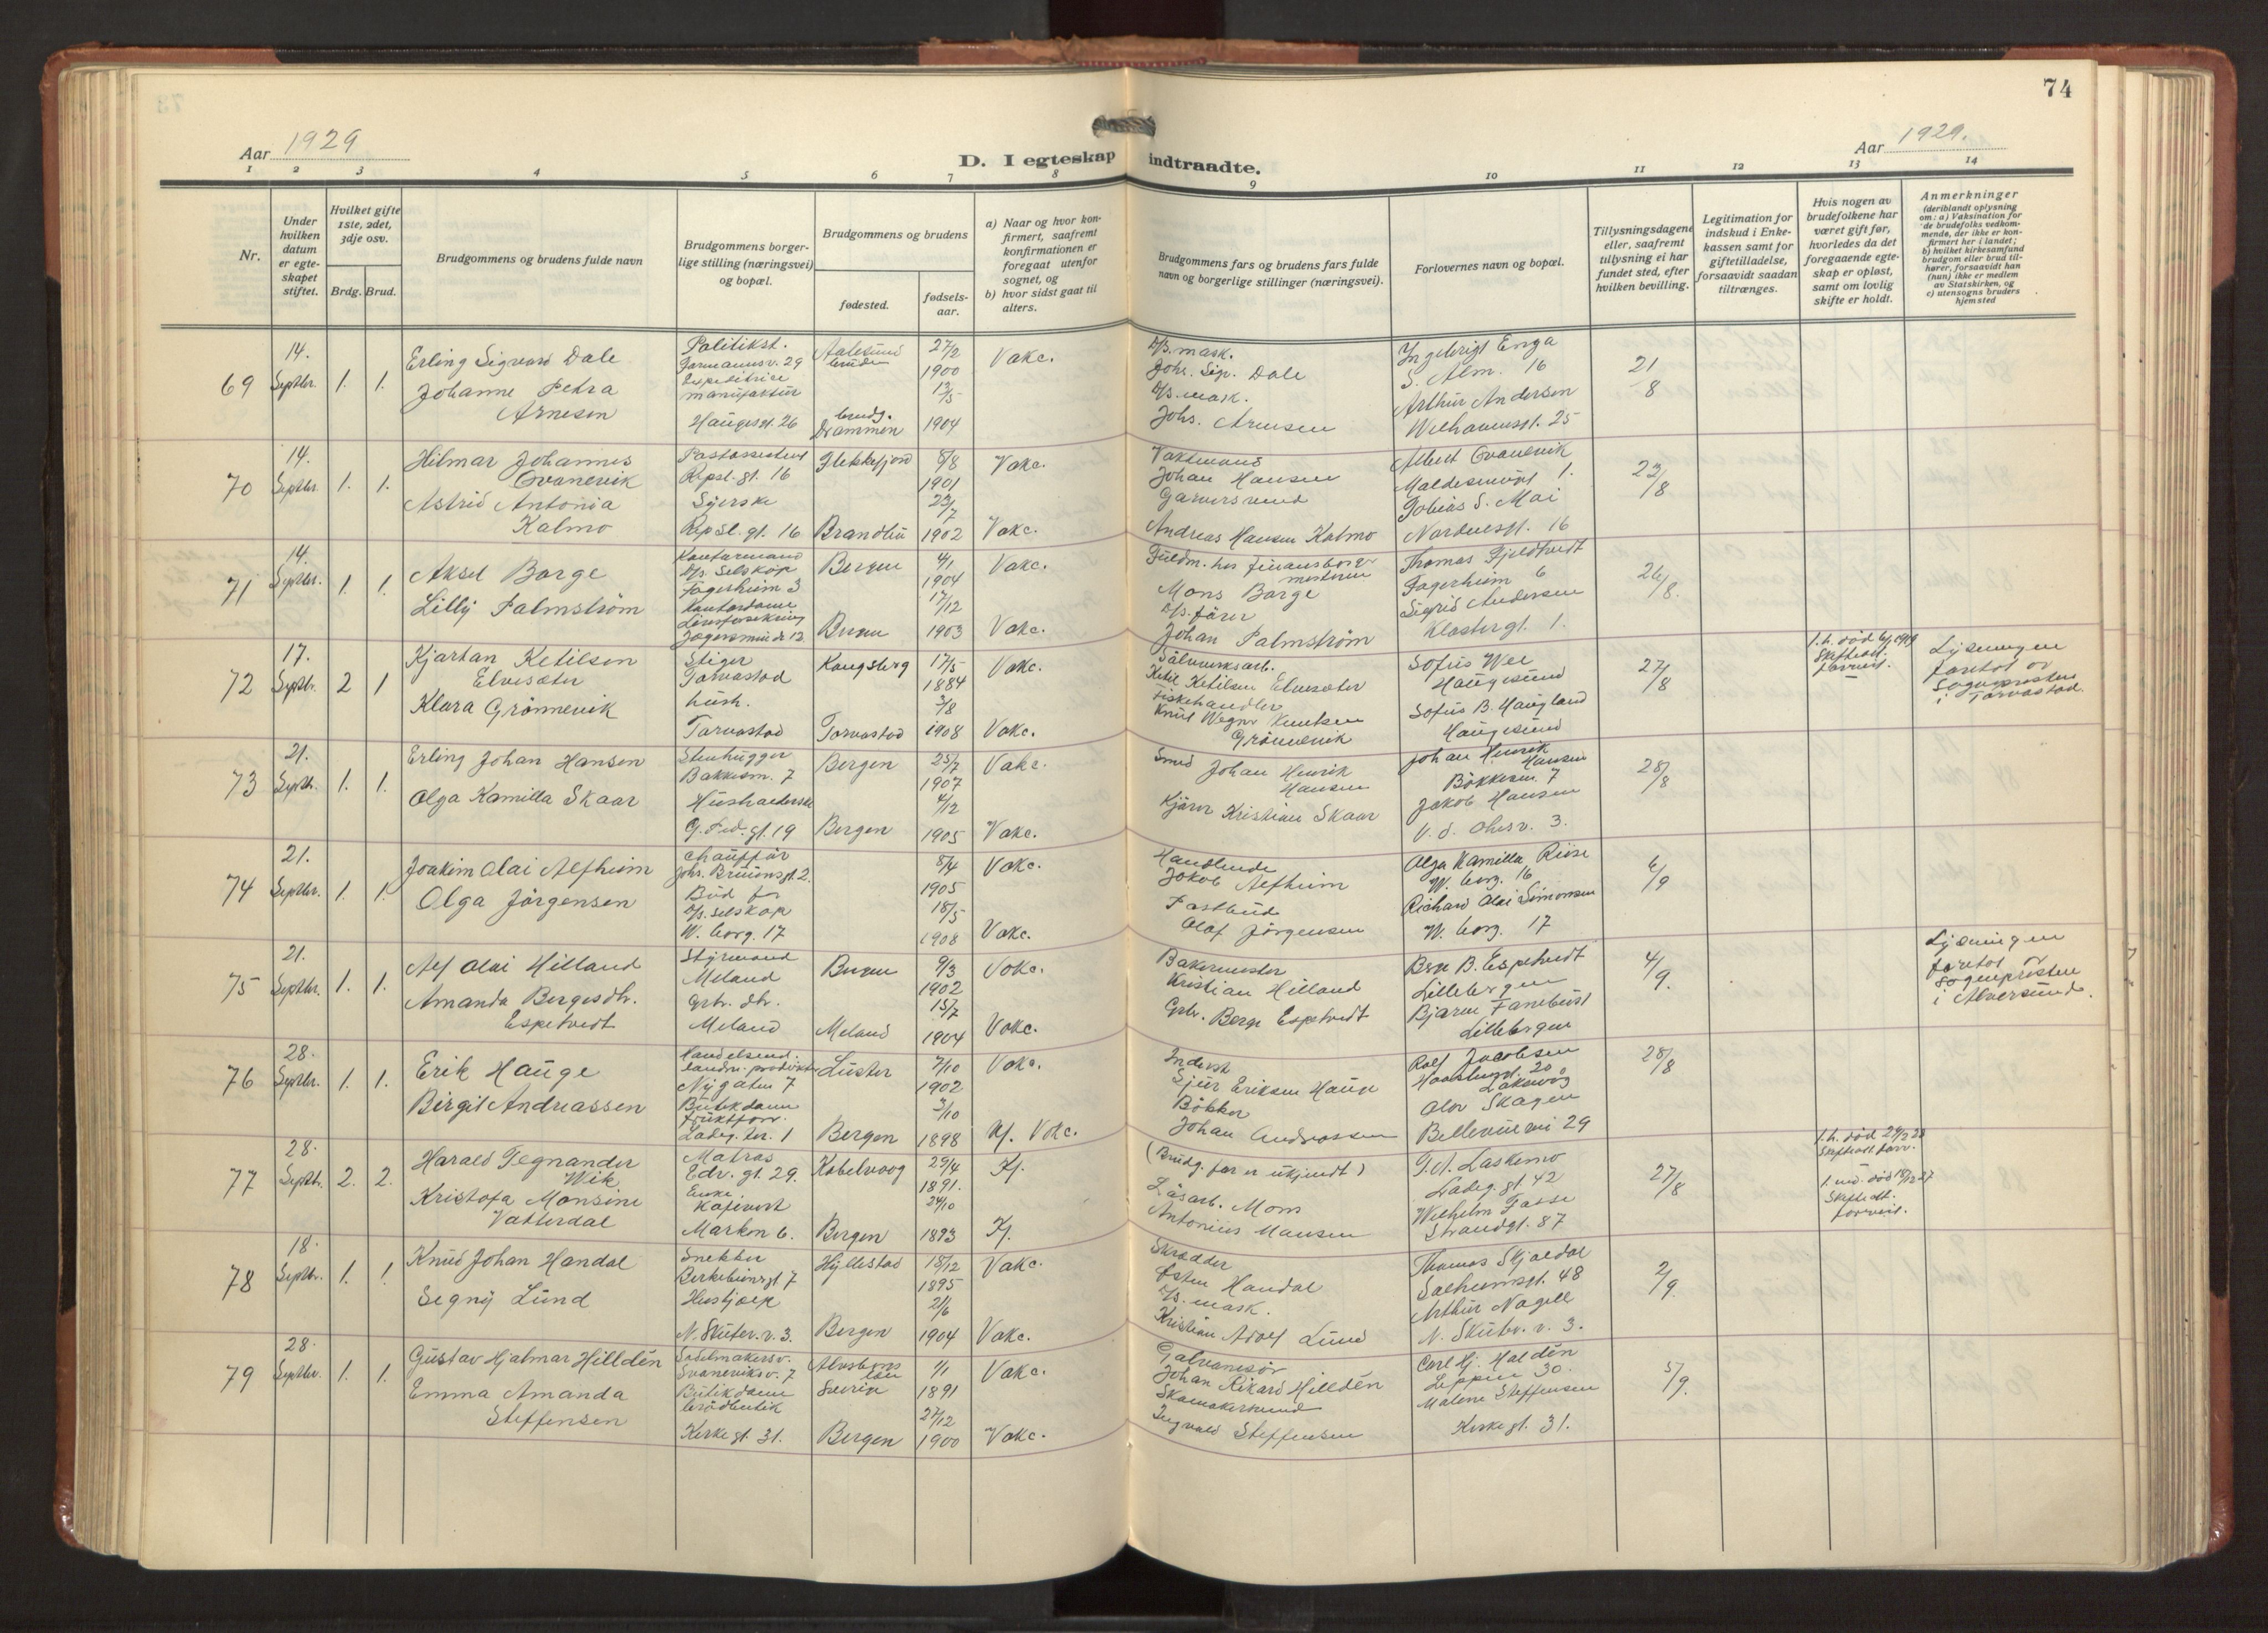 74
Aar 1929
Aar 1929.
D. I egteskap indtraadte.
1 2 3 4 5 6 7 8 9 10 11 12 13 14
Nr.
Under hvilken datum er egteskapet stiftet.
Hvilket gifte 1ste, 2det, 3dje osv.
Brdg. Brud.
Brudgommens og brudens fulde navn
Brudgommens borgerlige stilling (næringsvei) og bopæl.
Brudgommens og brudens
fødested.
fødselsaar.
a) Naar og hvor konfirmert, saafremt konfirmationen er foregaat utenfor sognet, og
b) hvor sidst gaat til alters.
Brudgommens fars og brudens fars fulde navn og borgerlige stillinger (næringsvei).
Forlovernes navn og bopæl.
Tillysningsdagene eller, saafremt tillysning ei har fundet sted, efter hvilken bevilling.
Legitimation for indskud i Enkekassen samt for giftetilladelse, forsaavidt saadan tiltrænges.
Hvis nogen av brudefolkene har været gift før, hvorledes da det foregaaende egteskap er opløst, samt om lovlig skifte er holdt.
Anmerkninger (deriblandt oplysning om: a) Vaksination for de brudefolks vedkommende, der ikke er konfirmert her i landet; b) hvilket kirkesamfund brudgom eller brud tilhører, forsaavidt han (hun) ikke er medlem av Statskirken, og c) utensogns bruders hjemsted
69
14. Septbr. 1. 1.
Erling Sigvard Dale
Johanne Petra
Arnesen
Politikst.
manufaktur
Haugesgt. 26
Aalesund
brudg.
Drammen
27/2
1900
12/5
1904
Vakc.
D/s. mask.
Johs. Sig. Dale
D/s. mask.
Johs. Arnesen
Ingebrigt Enga
S. Alm. 16
Arthur Andersen
Welhavensgt. 25
21
8
70
14. Septbr. 1. 1.
Hilmar Johannes
Ovanevik
Astrid Antonia
Kalmo
Postassistent
Repsl. gt. 16
Syerske
Repsl. gt. 16
Flekkefjord
Brandbu
8/8
1901
23/7
1902
Vakc.
Vakc.
Vaktmand
Johan Hansen
Garversvend
Andreas Hansen Kalmo
Albert Ovanevik
Tobias S. Moi
Nordnesgt. 16
23/8
71
14. Septbr. 1. 1.
Aksel Borge
Lilly Palmström
Kontormand
D/s. selskap
Fagerheim 3
Kontordame
Livsforsikring
Bergen
Bergen
4/1
1904
17/12
1903
Vakc.
Vakc.
Fuldm. hos finansborger
mesteren
Mons Borge
D/s. fører
Johan Palmström
Thomas Fjeldtvedt
Fagerheim 6
Sigrid Andersen
Klostergt. 1.
26/8.
72
17. Septbr. 2 1
Kjartan Ketilson
Elvesæter
Klara Grønnevik
Stiger
Torvastad
hush.
Torvastad
Kongsberg
Torvastad
17/5
1884
3/8
1908
Vakc.
Vakc.
Sølvverksarb.
Ketil Ketilsen Elvesæter
Fiskehandler
Knut Wegner Knutsen
Grønnevik
Sofus Wee
Haugesund
Sofus B. Haugland
Haugesund
27/8
Lysningen
foretat av
Sogneprästen
i Torvastad.
73
21. Septbr. 1. 1.
Erling Johan Hansen
Olga Kamilla Skaar
Stenhugger
Bakkesm. 7
Husholderske
Bergen
Bergen
23/7
1907
4/12
1905
Vakc.
Vakc.
Smed Johan Henrik
Hansen
Kjører Kristian Skaar
Johan Henrik
Hansen
Bakkesm. 7
Jakob Hansen
28/8
74
21. Septbr. 1. 1.
Joakim Olai Alfheim
Olga Jörgensen
Chauffør
Johs. Bruunsgt. 2.
Bud for
D/s. selskap
W. borg. 17
8/4
1905
18/5
1908
Vakc.
Vakc.
Handlende
Jakob Alfheim
Postbud
Olaf Jörgensen
Olga Kamilla Riise
W. borg. 16
Richard Olai Simonsen
W. borg. 17
6/9
75
21. Septbr. 1. 1.
Alf Olai Hilland
Amanda Bergesdtr.
Espetvedt
Styrmand
Meland
Grbr. dtr.
Meland
Bergen
Meland
9/3
1902
15/7
1904
Vakc.
Vakc.
Bakermester
Kristian Hilland
Grbr. Berge Espetvedt
Lillebergen
Bjarne Fanebust
Lillebergen
4/9.
Lysningen
foretat av
sogneprästen
i Alversund.
76
28. Septbr. 1. 1.
Erik Hauge
Birgit Andreassen
Nygaten 7
Butikdame
Luster
Bergen
7/10
1902
3/10
1898
Vakc.
Kf. Vakc.
Inderst
Sjur Eriksen Hauge
Bøkker
Johan Andreassen
Rolf Jacobsen
Laksevåg
Olav Skagen
Bellevuevei 29
28/8
77
28. Septbr. 2. 2.
Harald Tegnander
Wik
Kristofa Monsine
Vatterdal
Matros
Edv. gt. 29.
Enke
Kafevert
Marken 6.
Kabelvaag
Bergen
29/4
1891.
24/10
1893
Kf.
Kf.
(Brudg. far er ukjendt)
Løsarb. Mons
Antonius Monsen
Ladeg. gt. 42
Wilhelm Fasse
Strandgt. 87
27/8
78
18. Septbr. 1. 1.
Knud Johan Handal
Segny Lund
Snekker
Birkebeinergt. 7
Hushjælp
N. Skuter. v. 3.
Hyllestad
Bergen
18/12
1895
2/6
1904
Vakc.
Vakc.
Skrædder
Østen Handal
D/s. mask.
Kristian Adolf Lund
Thomas Skjældal
Solheimsgt. 48
Arthur Nagell
N. Skutev. v. 3.
2/9.
79
28. Septbr. 1. 1.
Gustav Hjalmar Hilldén
Emma Amanda
Steffensen
Sadelmakersv.
Svaneviksv. 7
Butikdame
brødbutik
Kirkegt. 31.
Sverige
Bergen
1/1
1891
27/12
1900
Vakc.
Vakc.
Galvanisør
Johan Rikard Hilldén
Skomakersvend
Ingvald Steffensen
Carl Hj. Haldén
Leppen 30.
Malene Steffensen
Kirkegt. 31.
5/9.